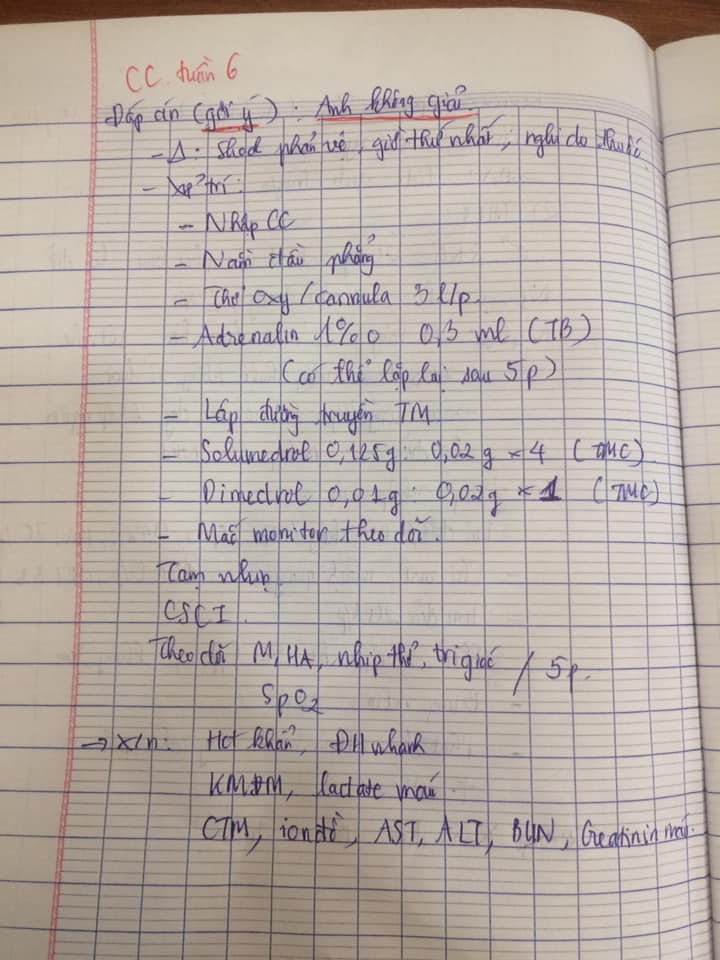 CC tuần 6
Đáp án (gợi ý) : Anh không giải.
- Δ : Shock phản vệ, giờ thứ nhất, nghi do thuốc
- Xử trí:
- Nhập CC
- Nằm đầu phẳng
- Thở oxy/cannula 3 l/p
- Adrenalin 1‰ 0,3 ml (TB)
(có thể lặp lại sau 5p)
- Lập đường truyền TM
- Solumedrol 0,125g: 0,02g × 4 (TMC)
- Dimedrol 0,01g: 0,02g × 1 (TMC)
- Mắc monitor theo dõi.
Tạm nhịn
CSCI.
Theo dõi M, HA, nhịp thở, tri giác / 5p.
SpO2
→ XN: Hct khẩn, ĐH nhanh
KMĐM, lactate máu
CTM, ion đồ, AST, ALT, BUN, Creatinin máu.